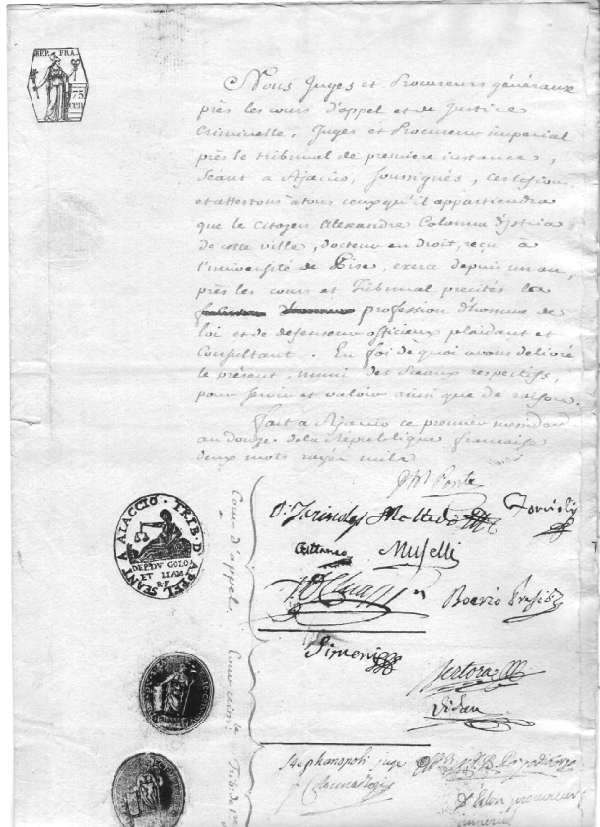 REP. FRA.
75
CEN
Nous Juges et Procureurs généraux
près les cours d'appel et de Justice
Criminelle, Juges et Procureur imperial
près le tribunal de premiere instance,
Séant a Ajaccio, soussignés, certifions
et attestons à tous ceux qu'il appartiendra
que le Citoyen Alexandre Colonna d'Istria
de cette ville, docteur en droit, reçu à
l'université de Pise, exerce depuis un an,
près les cours et Tribunal précités la
profession d'homme de
loi et de defenseur officieux plaidant et
Consultant. En foi de quoi avons delivré
le présent, muni des Sceaux respectifs,
pour servir et valoir ainsi que de raison.
fait a Ajaccio ce premier messidor
an douze de la République française
deux mots rayés nuls
TRIB. D'APPEL SEANT A AIACCIO
DEP. DV GOLO
ET LIAM
R F
Cour d'appel
Cour crim.le
Trib. de 1re
Cattaneo
Muselli
Boerio
Simeoni
Sertora
Stephanopoli juge
procureur
imperial